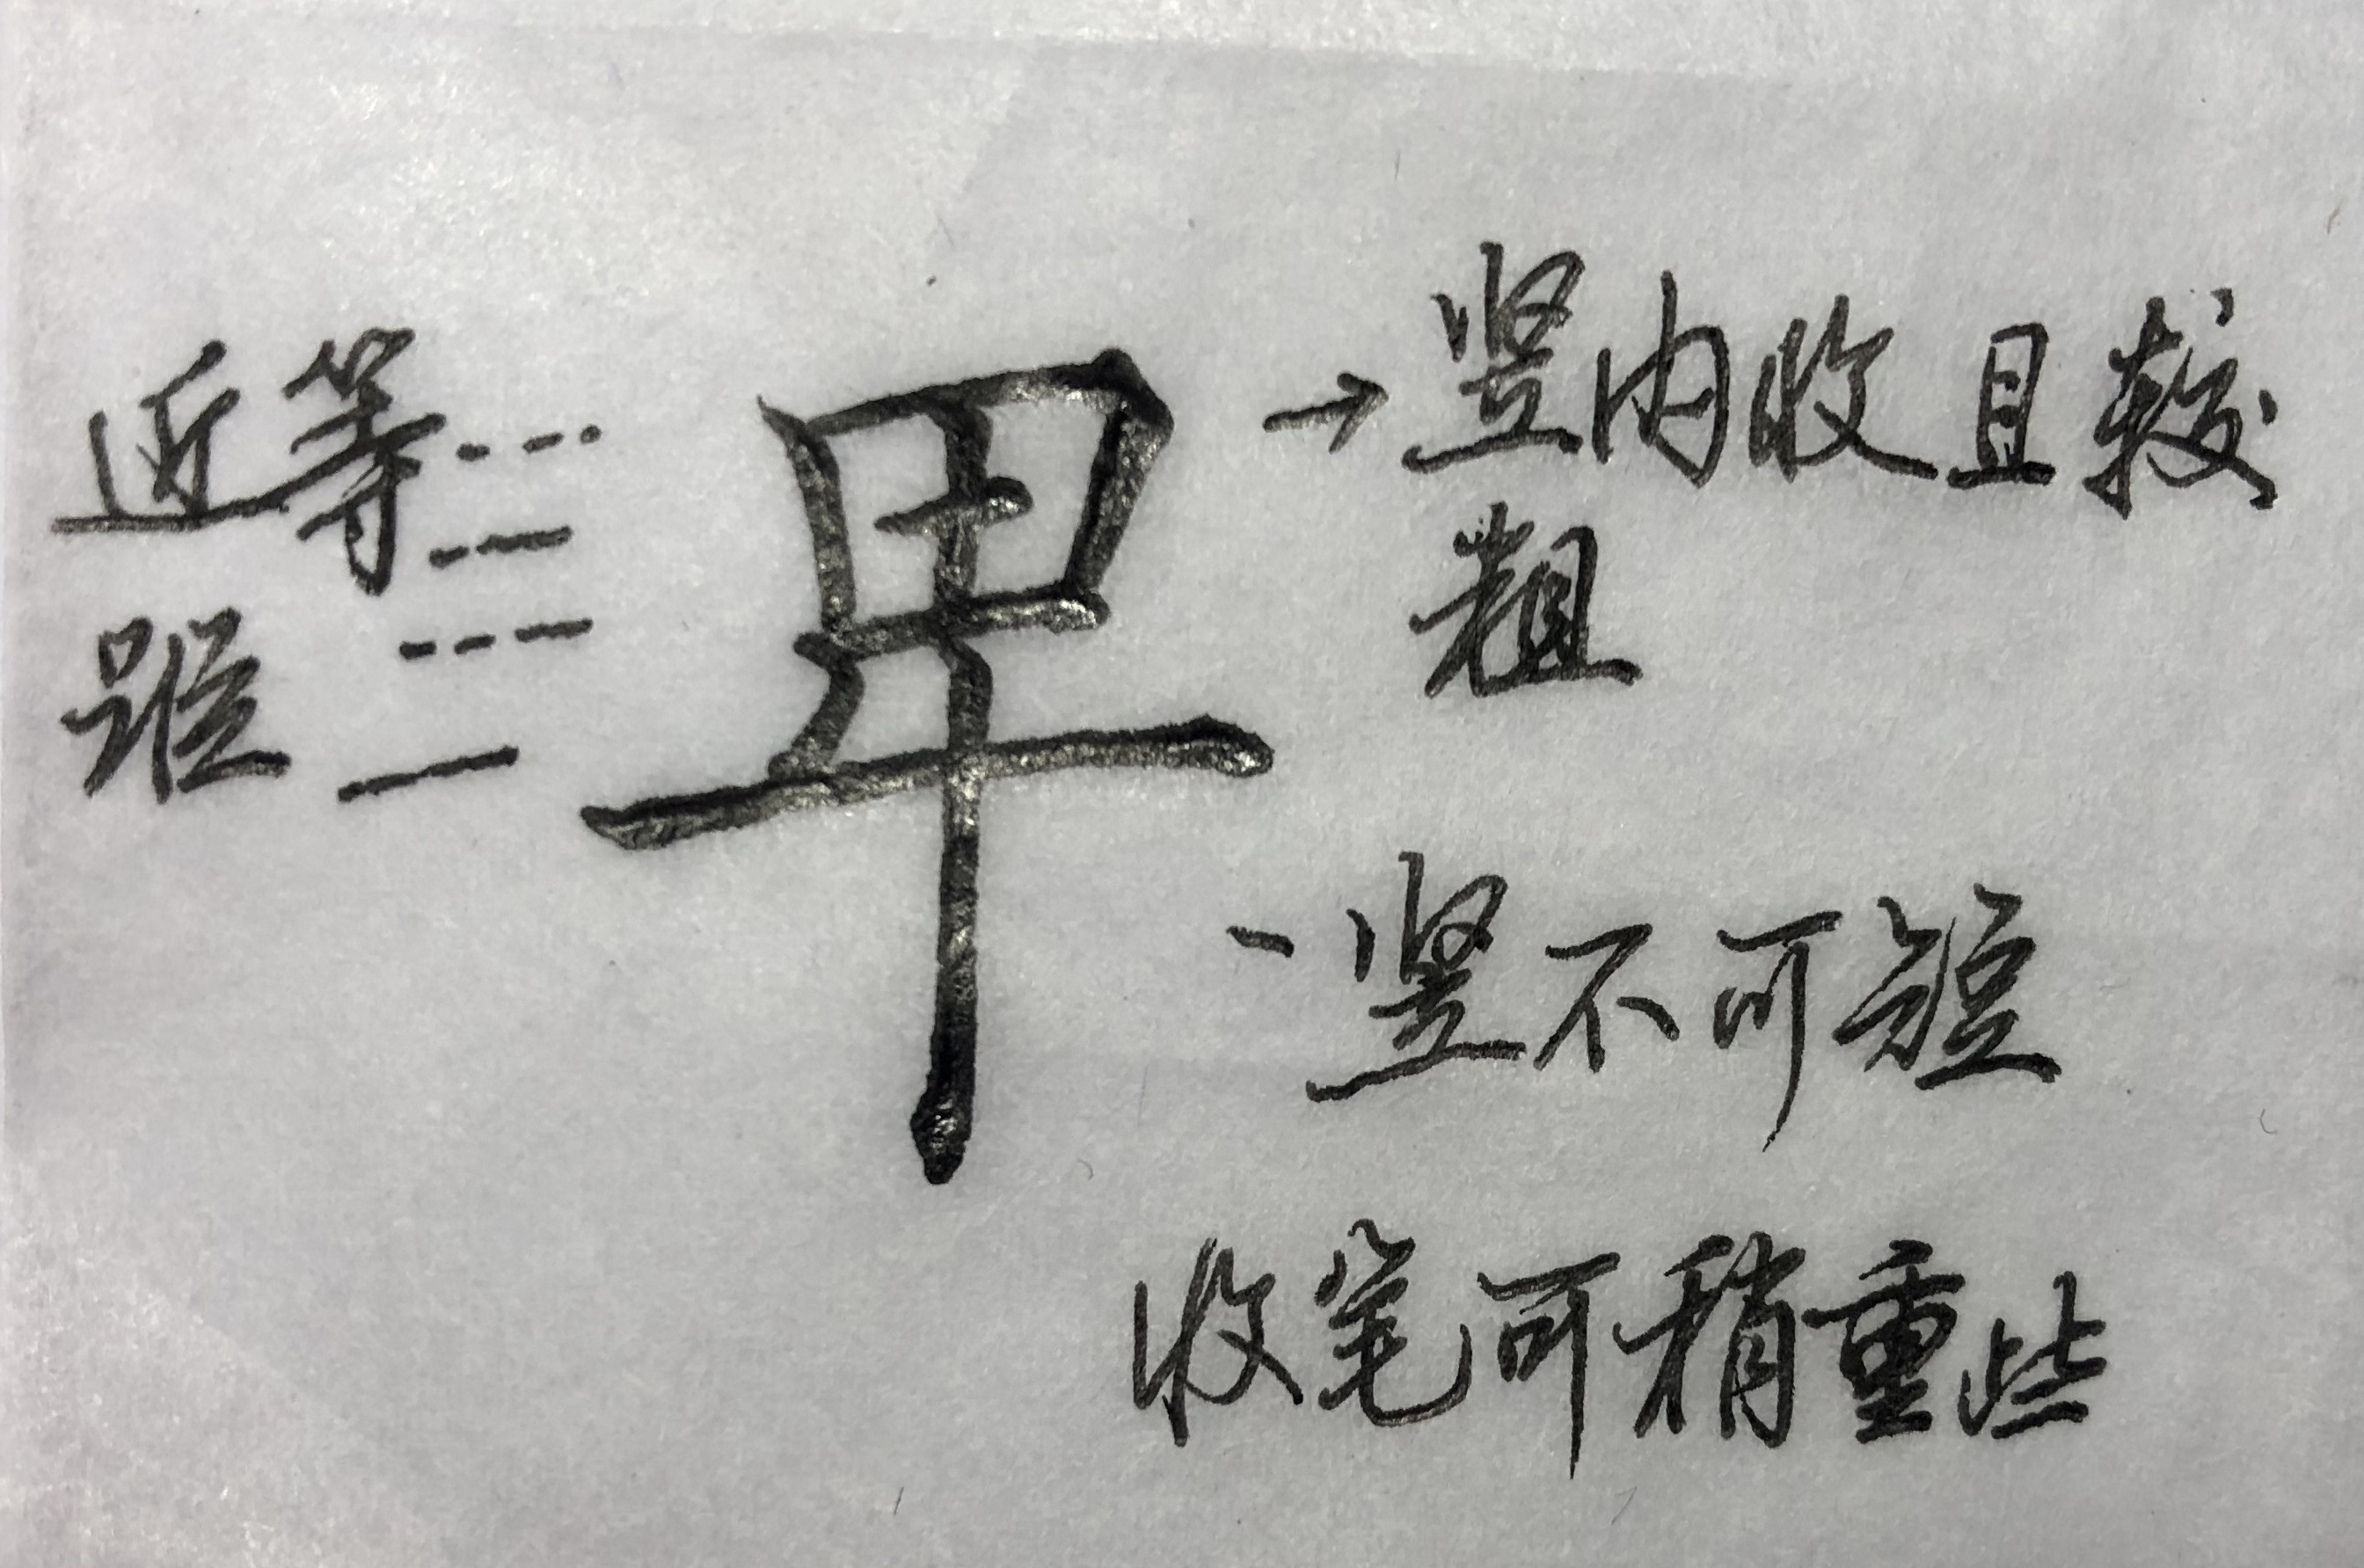 近等
距
卑
→竖内收且较
粗
-竖不可短
收笔可稍重些